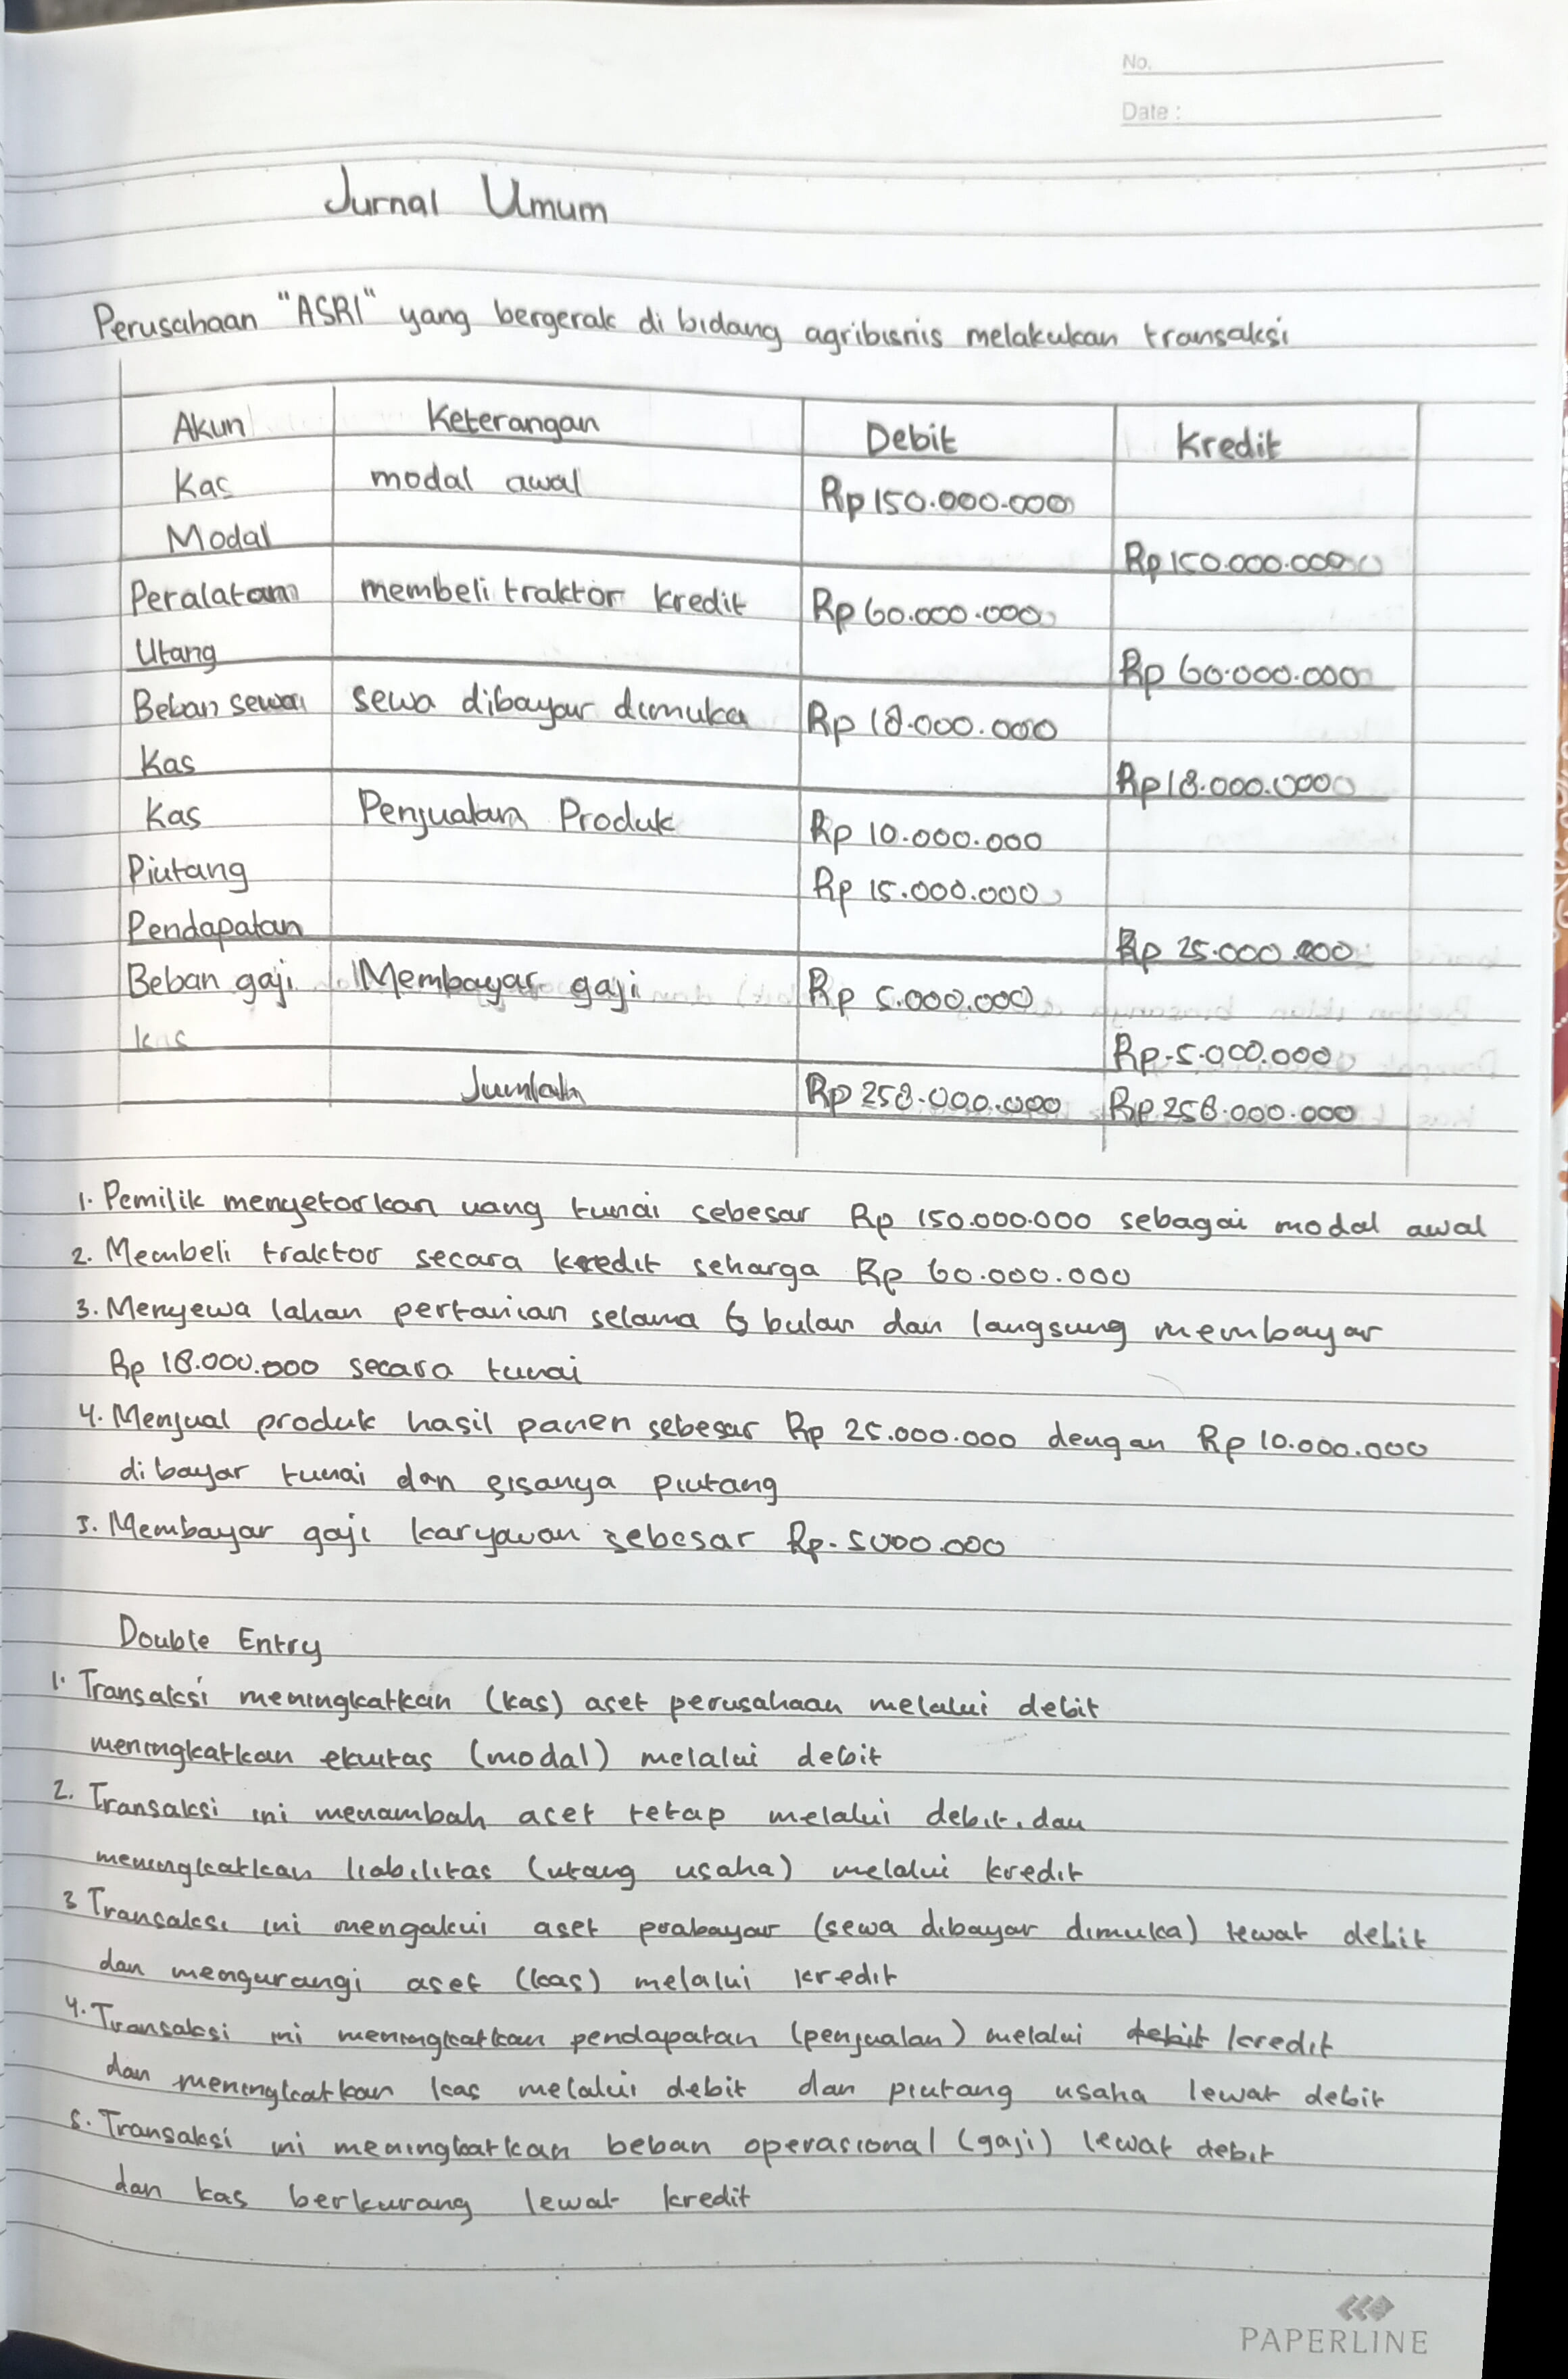 No.
Date :
Jurnal Umum
Perusahaan "ASRI" yang bergerak di bidang agribisnis melakukan transaksi
Akun Keterangan Debit Kredit
Kas modal awal Rp 150.000.000
Modal Rp 150.000.000
Peralatan membeli traktor kredit Rp 60.000.000
Utang Rp 60.000.000
Beban sewa sewa dibayar dimuka Rp 18.000.000
Kas Rp 18.000.0000
Kas Penjualan Produk Rp 10.000.000
Piutang Rp 15.000.000
Pendapatan Rp 25.000.000
Beban gaji Membayar gaji Rp 5.000.000
kas Rp.5.000.000
Jumlah Rp 258.000.000 Rp 258.000.000
1. Pemilik menyetorkan uang tunai sebesar Rp 150.000.000 sebagai modal awal
2. Membeli traktor secara kredit seharga Rp 60.000.000
3. Menyewa lahan pertanian selama 6 bulan dan langsung membayar
Rp 18.000.000 secara tunai
4. Menjual produk hasil panen sebesar Rp 25.000.000 dengan Rp 10.000.000
dibayar tunai dan sisanya piutang
5. Membayar gaji karyawan sebesar Rp. 5000.000
Double Entry
1. Transaksi meningkatkan (kas) aset perusahaan melalui debit
meningkatkan ekuitas (modal) melalui debit
2. Transaksi ini menambah aset tetap melalui debit, dan
meningkatkan liabilitas (utang usaha) melalui kredit
3 Transaksi ini mengakui aset prabayar (sewa dibayar dimuka) lewat debit
dan mengurangi aset (kas) melalui kredit
4. Transaksi ini meningkatkan pendapatan (penjualan) melalui debit kredit
dan meningkatkan kas melalui debit dan piutang usaha lewat debit
5. Transaksi ini meningkatkan beban operasional (gaji) lewat debit
dan kas berkurang lewat kredit
PAPERLINE